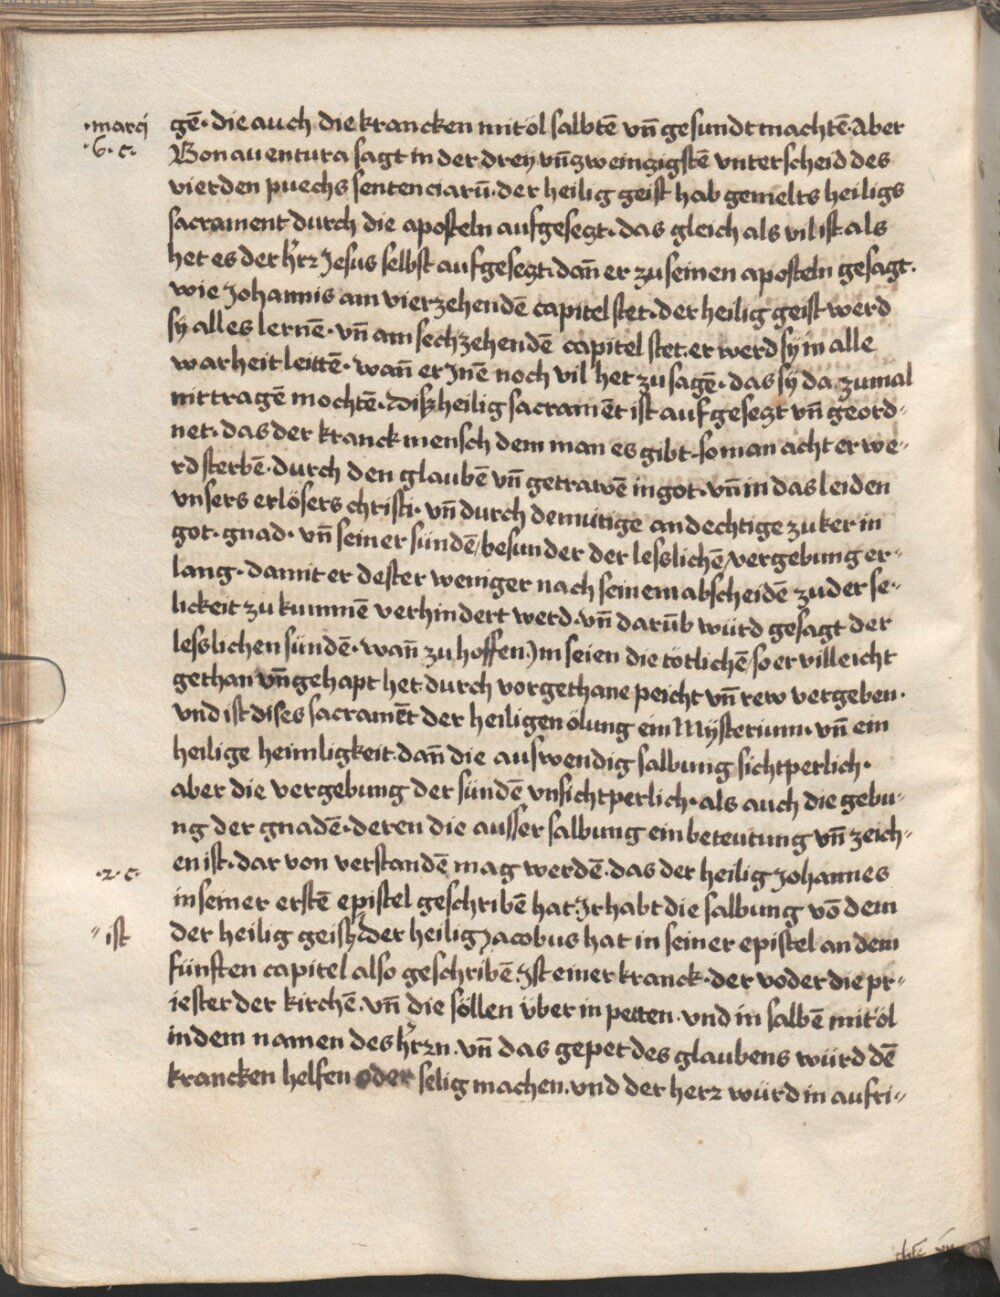 ·marci
·6·c·
gē· die auch die krancken mit öl salbtē vn̄ gesundt machtē· Aber
Bonauentura sagt in der drey vn̄ zweinzigstē vnterscheid des
vierden puechs sentenciarū· der heilig geist hab gemelts heiligs
sacrament durch die aposteln aufgesezt· das gleich als vil ist als
het es der hr̄z Jesus selbst aufgesezt· dan̄ er zu seinen aposteln gesagt·
wie Johannis am vierzehendē capitel stet· der heilig geist werd
sy alles lernē· vn̄ am sechzehendē capitel stet· er werd sy in alle
warheit leittē· wan̄ er Jnē noch vil het zu sagē· das sy da zumal
nit tragē mochtē· Disz heilig sacramēt ist aufgesezt vn̄ geord-
net· das der kranck mensch dem man es gibt· so man acht er we-
rd sterbē· durch den glaubē vn̄ getrawē in got· vn̄ in das leiden
vnsers erlösers christi· vn̄ durch demütige andechtige zuker in
got· gnad· vn̄ seiner sündē/ besunder der lesslichē/ vergebung er-
lang· damit er dester weniger nach seinem abscheidē zu der se-
lickeit zu kummē verhindert werd· vn̄ darūb würd gesagt der
lesslichen sündē· wan̄ zu hoffen Jm seien die tötlichē/ so er villeicht
gethan vn̄ gehapt het durch vorgethane peicht vn̄ rew vergeben·
vnd ist dises sacramēt der heiligen ölung ein Mÿsterium· vn̄ ein
heilige heimligkeit· dan̄ die auswendig salbung sichtperlich·
aber die vergebung der sündē vnsichtperlich· als auch die gebu-
ng der gnadē· deren die ausser salbung ein beteutung vn̄ zeich-
en ist· dar von verstandē mag werdē· das der heilig Johannes
·2·c·
in seiner erstē epistel geschribē hat· Jr habt die salbung vō dem
" ist
der heilig geist· der heilig Jacobus hat in seiner epistel an dem
fünften capitel also geschribē· Jst einer kranck· der voder die pr-
iester der kirchē· vn̄ die söllen über in petten· vnd in salbē mit öl
in dem namen des hr̄zn· vn̄ das gepet des glaubens würd dē
krancken helfen oder selig machen· vnd der herz würd in aufri-